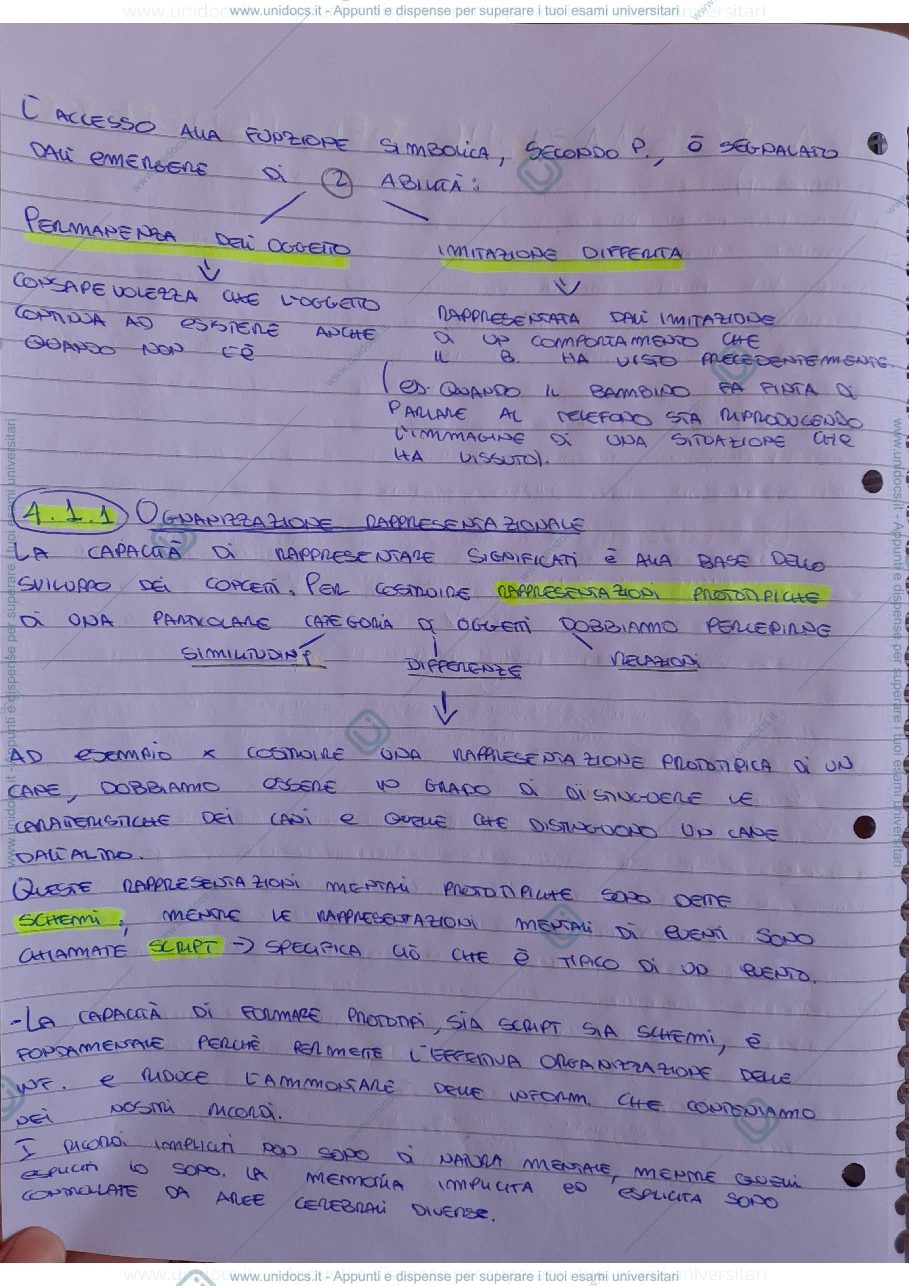 www.unidocs.it - Appunti e dispense per superare i tuoi esami universitari
L'ACCESSO ALLA FUNZIONE SIMBOLICA, SECONDO P., È SEGNALATO
DALL'EMERGERE DI 2 ABILITÀ:
PERMANENZA DELL'OGGETTO
CONSAPEVOLEZZA CHE L'OGGETTO
CONTINUA AD ESISTERE ANCHE
QUANDO NON C'È
IMITAZIONE DIFFERITA
RAPPRESENTATA DALL'IMITAZIONE
DI UN COMPORTAMENTO CHE
IL B. HA VISTO PRECEDENTEMENTE
(es. QUANDO IL BAMBINO FA FINTA DI
PARLARE AL TELEFONO STA RIPRODUCENDO
L'IMMAGINE DI UNA SITUAZIONE CHE
HA VISSUTO).
4.1.1 ORGANIZZAZIONE RAPPRESENTAZIONALE
LA CAPACITÀ DI RAPPRESENTARE SIGNIFICATI È ALLA BASE DELLO
SVILUPPO DEI CONCETTI. PER COSTRUIRE RAPPRESENTAZIONI PROTOTIPICHE
DI UNA PARTICOLARE CATEGORIA DI OGGETTI DOBBIAMO PERCEPIRNE
SIMILITUDINI DIFFERENZE RELAZIONI
AD ESEMPIO x COSTRUIRE UNA RAPPRESENTAZIONE PROTOTIPICA DI UN
CANE, DOBBIAMO ESSERE IN GRADO DI DISTINGUERE LE
CARATTERISTICHE DEI CANI E QUELLE CHE DISTINGUONO UN CANE
DALL'ALTRO.
QUESTE RAPPRESENTAZIONI MENTALI PROTOTIPICHE SONO DETTE
SCHEMI, MENTRE LE RAPPRESENTAZIONI MENTALI DI EVENTI SONO
CHIAMATE SCRIPT → SPECIFICA CIÒ CHE È TIPICO DI UN EVENTO.
-LA CAPACITÀ DI FORMARE PROTOTIPI, SIA SCRIPT SIA SCHEMI, È
FONDAMENTALE PERCHÈ PERMETTE L'EFFETTIVA ORGANIZZAZIONE DELLE
INF. E RIDUCE L'AMMONTARE DELLE INFORM. CHE CONTENIAMO
NEI NOSTRI RICORDI.
I RICORDI IMPLICITI NON SONO DI NATURA MENTALE, MENTRE QUELLI
ESPLICITI LO SONO. LA MEMORIA IMPLICITA ED ESPLICITA SONO
CONTROLLATE DA AREE CEREBRALI DIVERSE.
www.unidocs.it - Appunti e dispense per superare i tuoi esami universitari